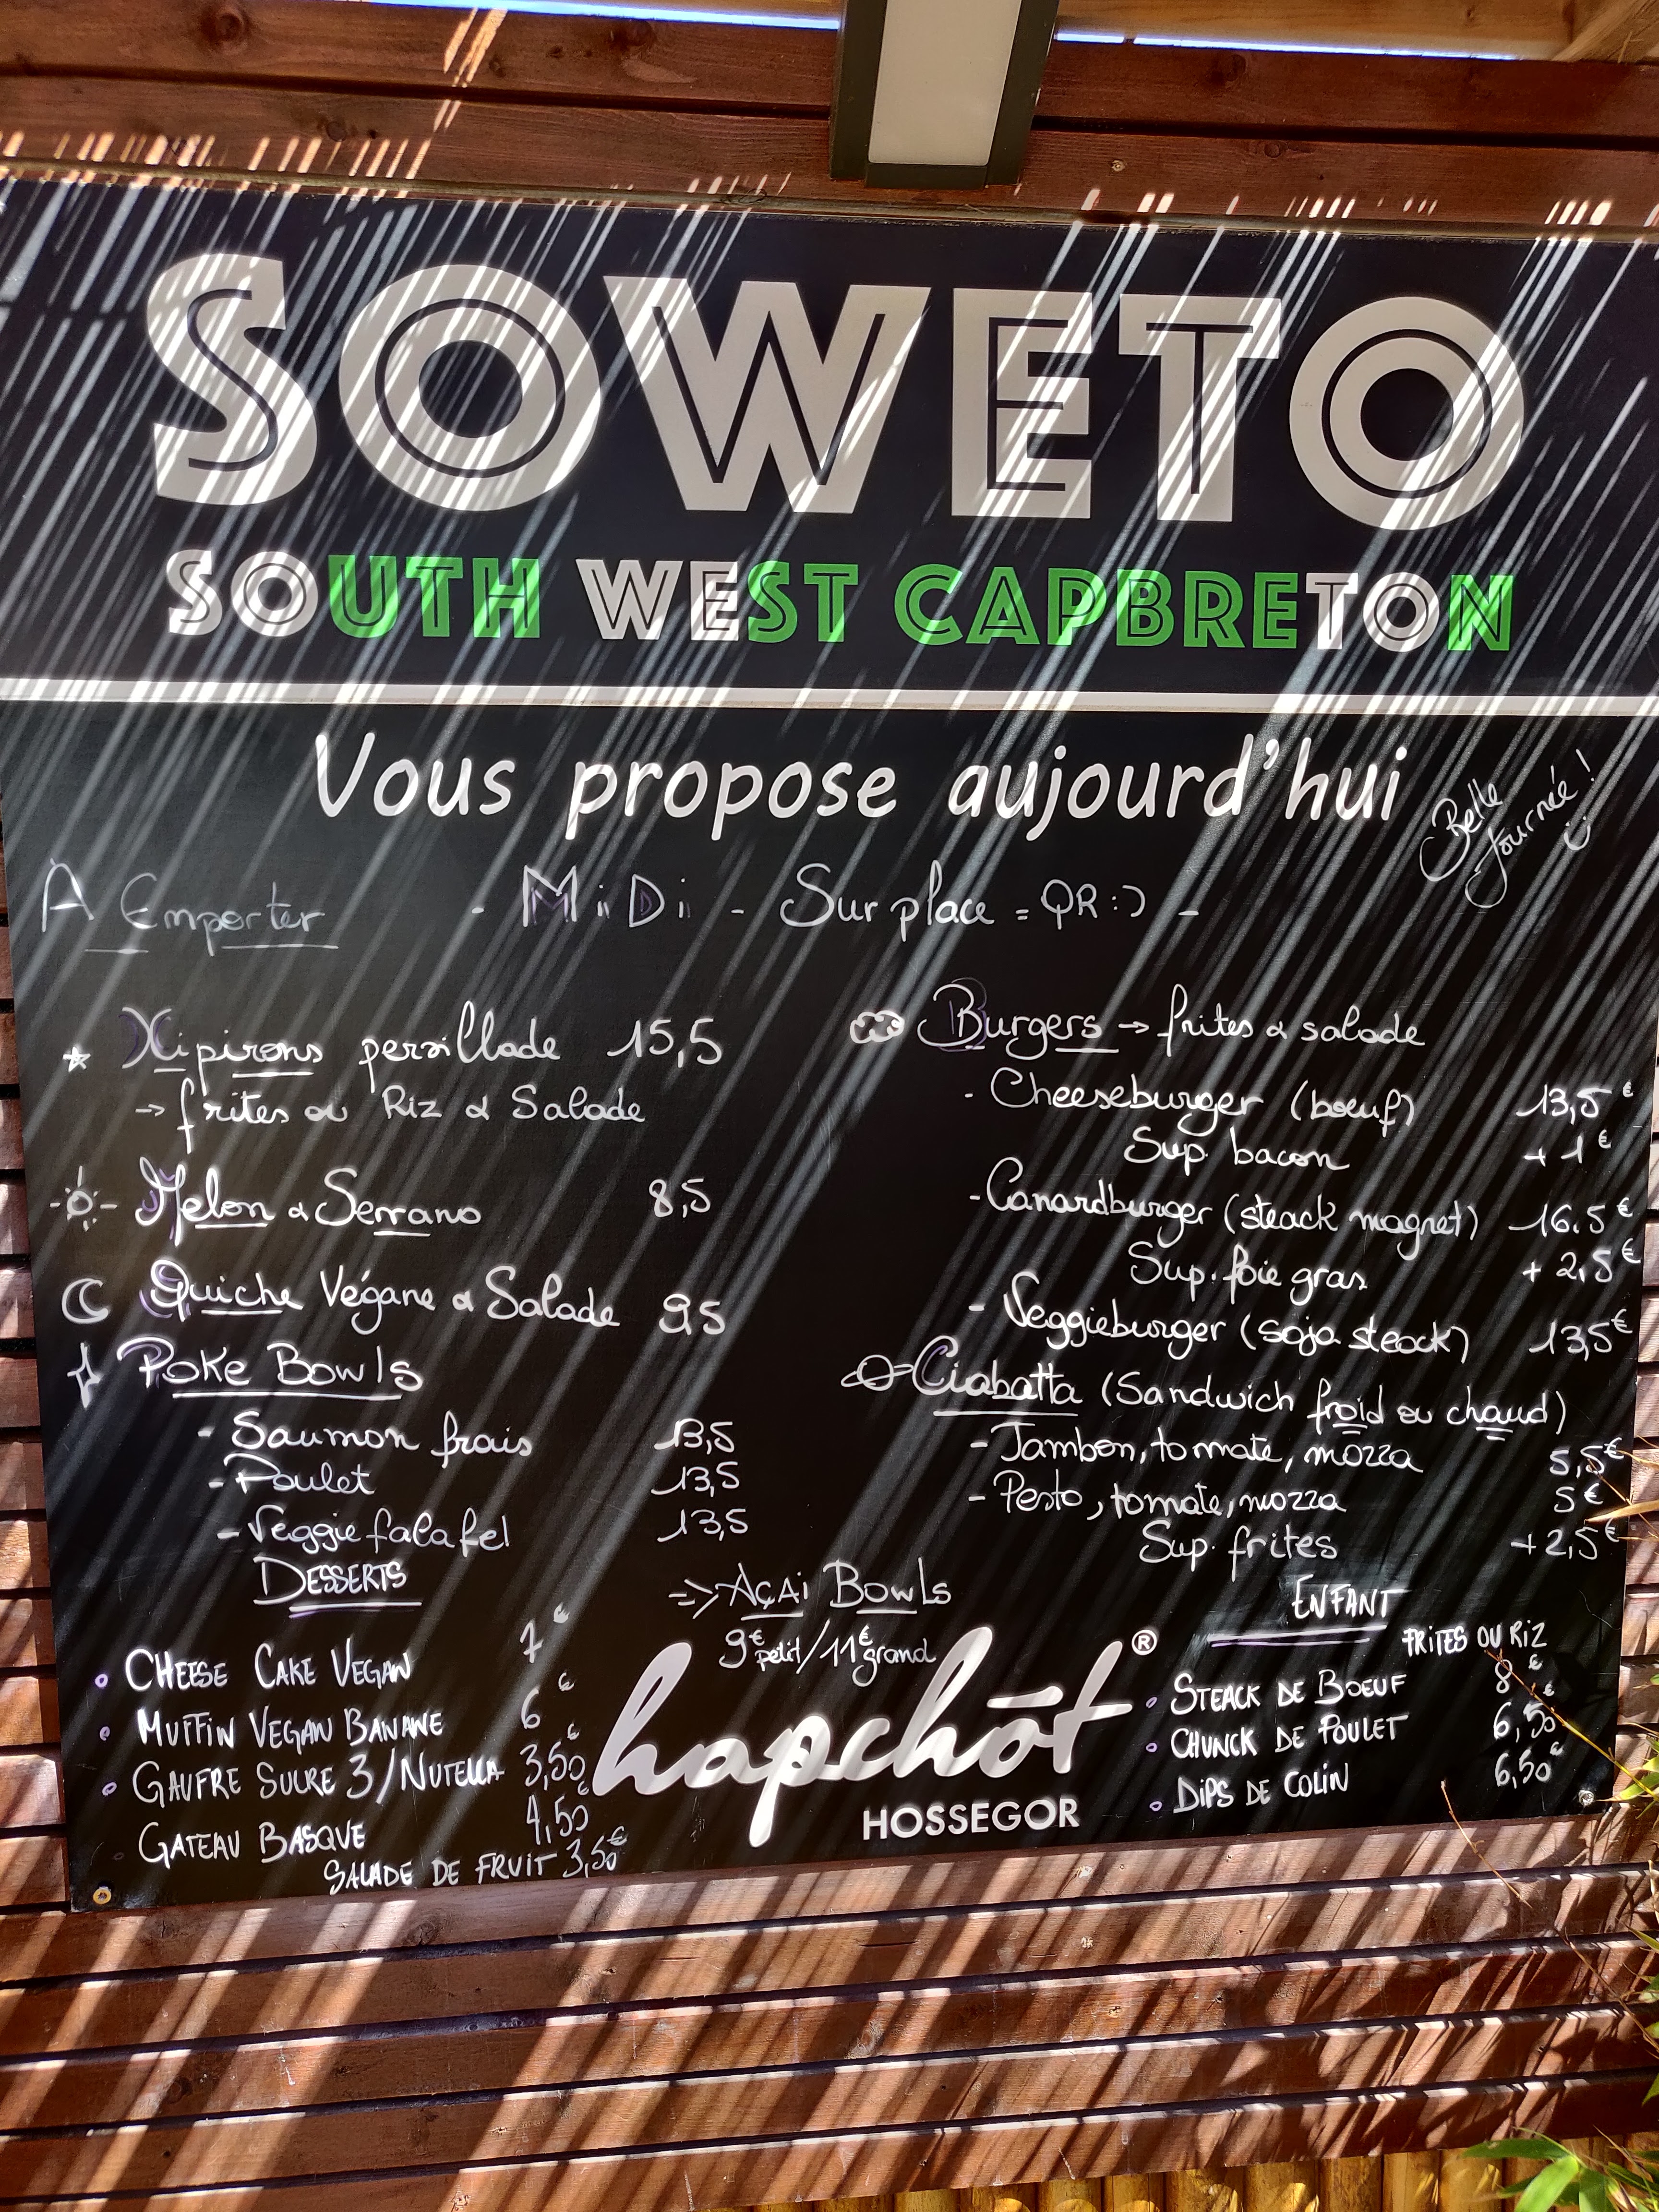 SOWETO
SOUTH WEST CAPBRETON
Vous propose aujourd'hui
Belle
Journée !
À Emporter - MiDi - Sur place = QR :) -
Xipirons persillade 15,5
→ frites ou Riz & Salade
Melon & Serrano 8,5
Quiche Végane & Salade 9,5
Poke Bowls
- Saumon frais 13,5
- Poulet 13,5
- Veggie falafel 13,5
Burgers → frites & salade
- Cheeseburger (boeuf) 13,5€
Sup. bacon +1€
- Canardburger (steack magret) 16.5€
Sup. foie gras + 2,5€
- Veggieburger (soja steack) 13,5€
Ciabatta (Sandwich froid ou chaud)
- Jambon, tomate, mozza 5,5€
- Pesto, tomate, mozza 5€
Sup. frites +2,5€
DESSERTS
• CHEESE CAKE VEGAN 7€
• MUFFIN VEGAN BANANE 6€
• GAUFRE SUCRE 3/NUTELLA 3,50€
GATEAU BASQUE 4,50€
SALADE DE FRUIT 3,50€
=> AÇAi BOWLS
9€ petit/11€ grand
hapchōt®
HOSSEGOR
ENFANT
FRITES OU RIZ
• STEACK DE BOEUF 8€
• CHUNCK DE POULET 6,50€
• DIPS DE COLIN 6,50€